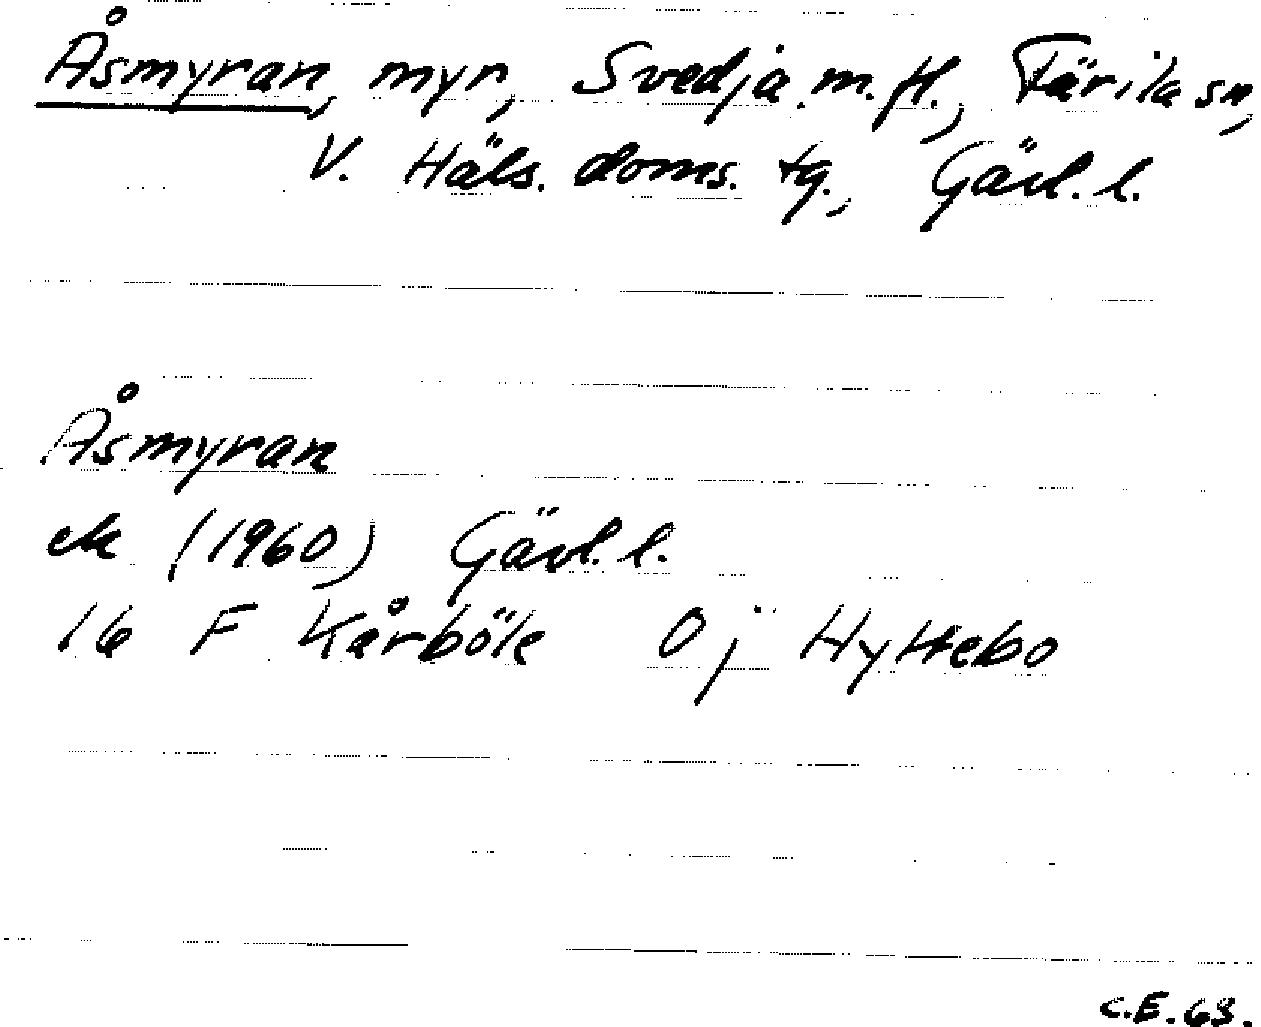 Åsmyran, myr, Svedja m.fl., Färila sn,
V. Häls. doms. tg., Gävl. l.
Åsmyran
ek (1960) Gävl. l.
16 F Kårböle 0 j Hyttebo
C.E. 63.